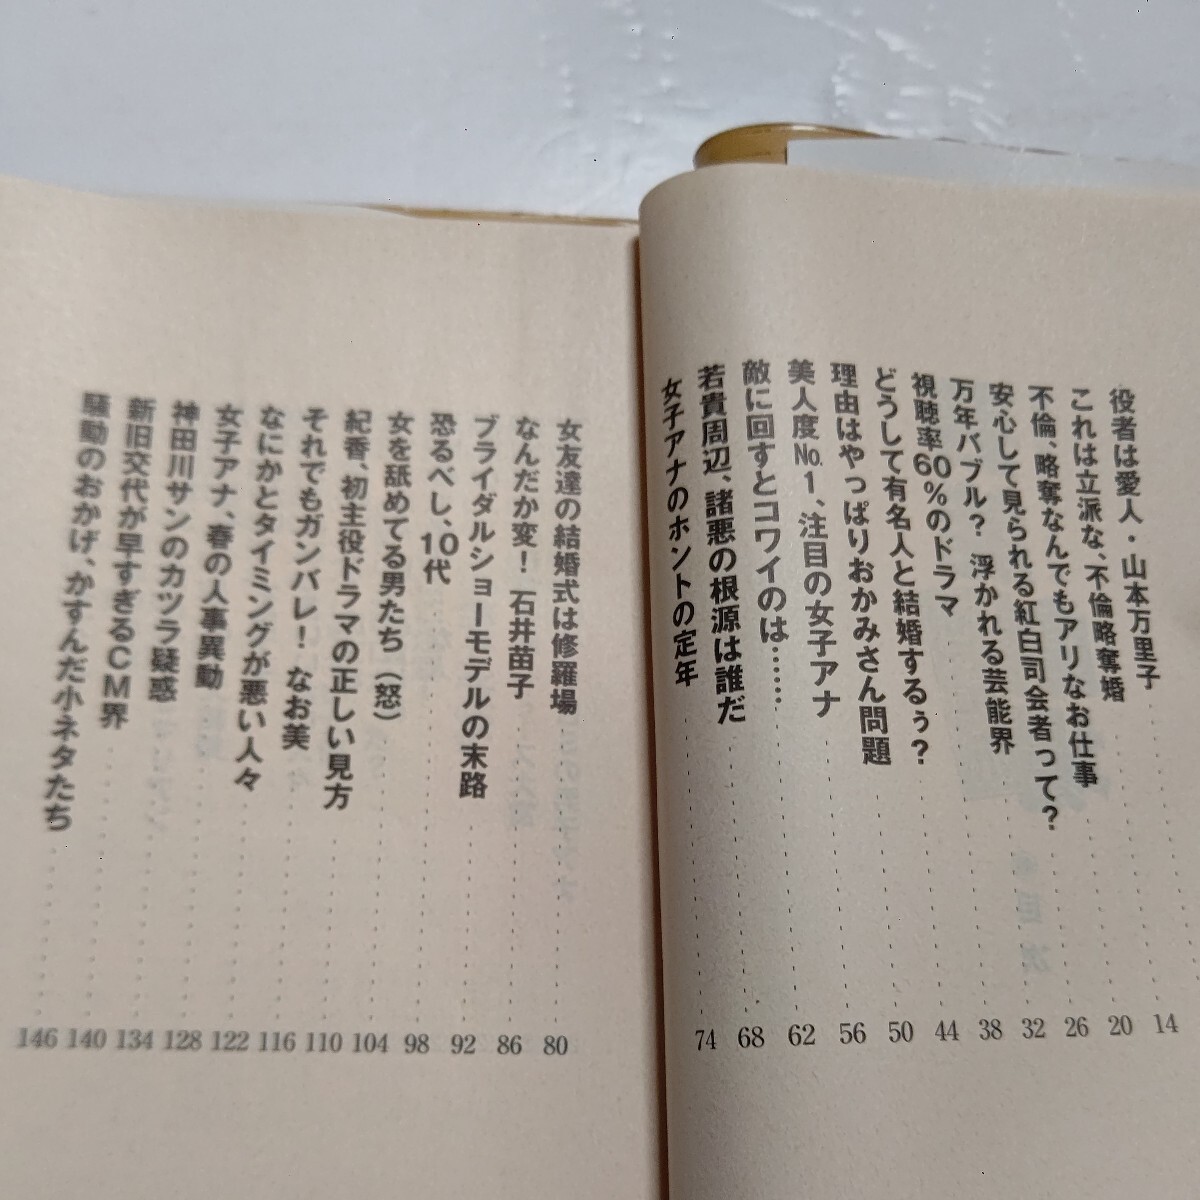 役者は愛人・山本万里子
これは立派な、不倫略奪婚
不倫、略奪なんでもアリなお仕事
安心して見られる紅白司会者って?
万年バブル? 浮かれる芸能界
視聴率60%のドラマ
どうして有名人と結婚するぅ?
理由はやっぱりおかみさん問題
美人度No.1、注目の女子アナ
敵に回すとコワイのは……
若貴周辺、諸悪の根源は誰だ
女子アナのホントの定年
14
20
26
32
38
44
50
56
62
68
74
女友達の結婚式は修羅場
なんだか変! 石井苗子
ブライダルショーモデルの末路
恐るべし、10代
女を舐めてる男たち(怒)
紀香、初主役ドラマの正しい見方
それでもガンバレ! なお美
なにかとタイミングが悪い人々
女子アナ、春の人事異動
神田川サンのカツラ疑惑
新旧交代が早すぎるCM界
騒動のおかげ、かすんだ小ネタたち
80
86
92
98
104
110
116
122
128
134
140
146
目次